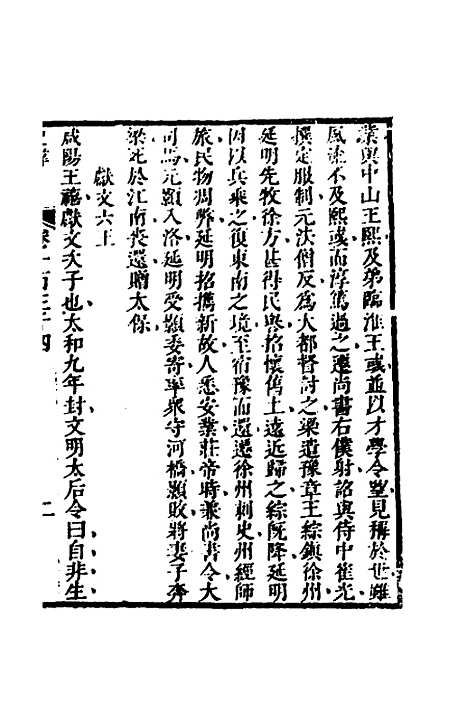 業與中山王熙及弟臨淮王彧並以才學令望見稱於世雖
風流不及熙彧而淳篤過之遷尚書右僕射詔與侍中崔光
撰定服制元法僧反為大都督討之梁遣豫章王綜鎮徐州
延明先牧徐方甚得民譽招懷舊土遠近歸之綜既降延明
因以兵乘之復東南之境至宿豫而還遷徐州刺史州經師
旅民物凋弊延明招攜新故人悉安業莊帝時兼尚書令大
司馬元顥入洛延明受顥委寄率眾守河橋顥敗將妻子奔
梁死於江南喪還贈太保
獻文六王
咸陽王禧獻文次子也太和九年封文明太后令曰自非生
卷一百三十四
二